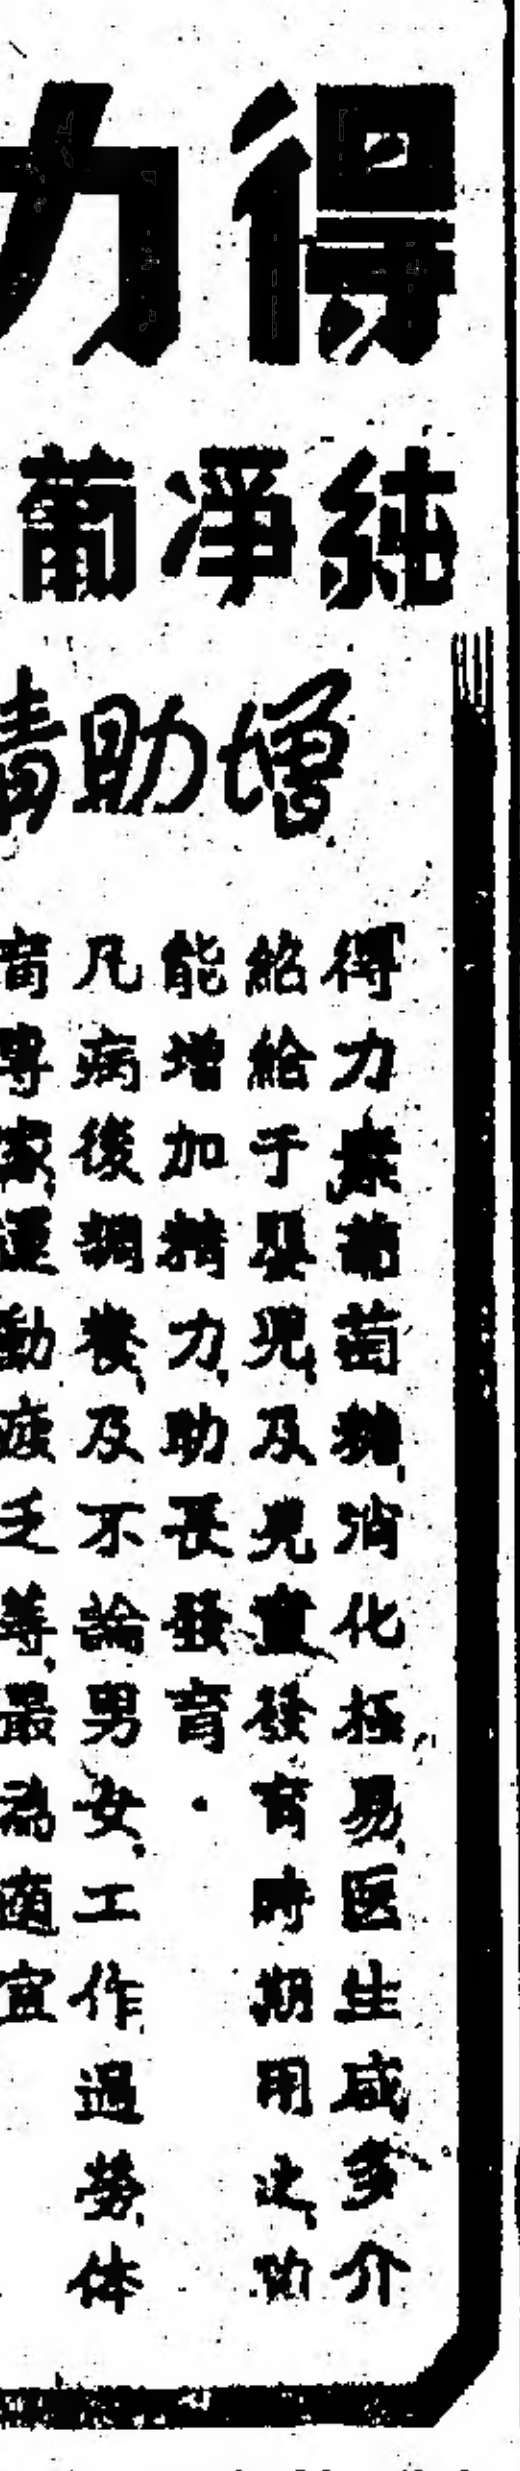 得力
純凈葡
增助精
得力素葡萄糖、消化極易、医生咸多介
紹給于嬰兒、及兒童發育時期用之、功
能增加精力、助長發育.
凡病後調養、及不論男女、工作過勞、体
育專家、運動疲乏等、最為適宜